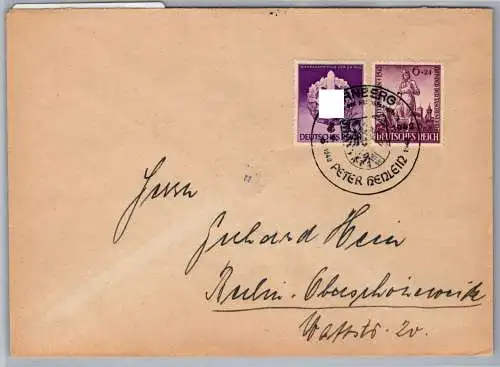 6+24
DEUTSCHES REICH
NÜRNBERG
1942
PETER HENLEIN
Herrn
Gerhard Hein
Berlin-Oberschöneweide
Wattstr. 20.